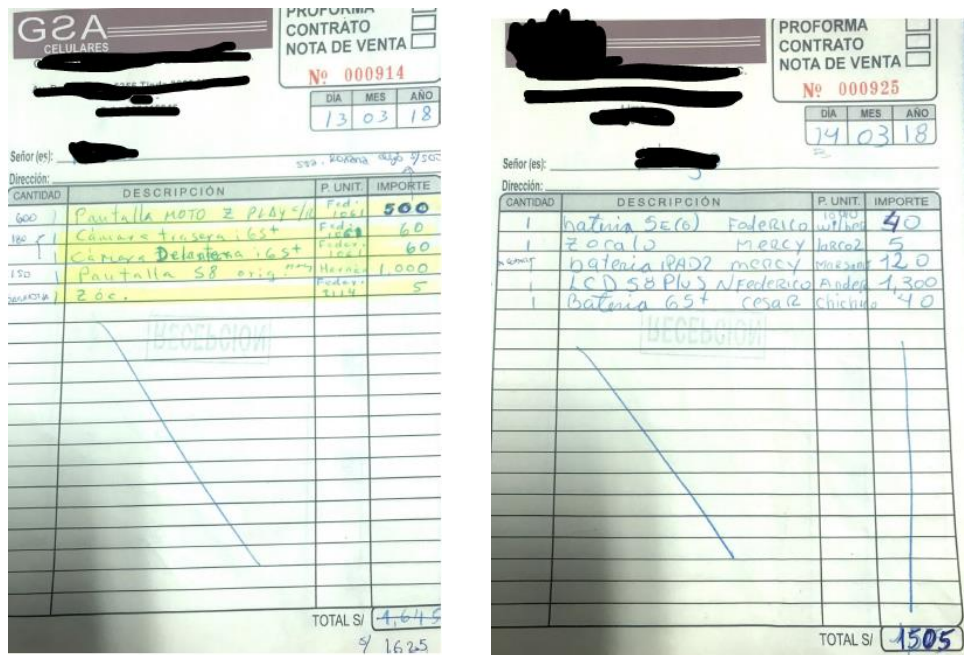 GSA
CELULARES
PROFORMA
CONTRATO
NOTA DE VENTA
Nº 000914
DÍA MES AÑO
13 03 18
Señor (es):
Dirección:
CANTIDAD DESCRIPCIÓN P. UNIT. IMPORTE
600 1 Pantalla MOTO Z PLAY 500
180 1 Cámara trasera i6S+ 60
1 Cámara Delantera i6S+ 60
150 1 Pantalla S8 orig. 1,000
1 Zóc. 5
RECEPCION
TOTAL S/ 1,645
S/ 1625
PROFORMA
CONTRATO
NOTA DE VENTA
Nº 000925
DÍA MES AÑO
14 03 18
Señor (es):
Dirección:
CANTIDAD DESCRIPCIÓN P. UNIT. IMPORTE
1 bateria 5E(6) Federico wilber 40
1 Zocalo MERCY 5
1 bateria iPAD2 mercy 120
1 LCD S8 Plus N/Federico 1,300
1 Bateria 6S+ cesar 40
RECEPCION
TOTAL S/ 1505